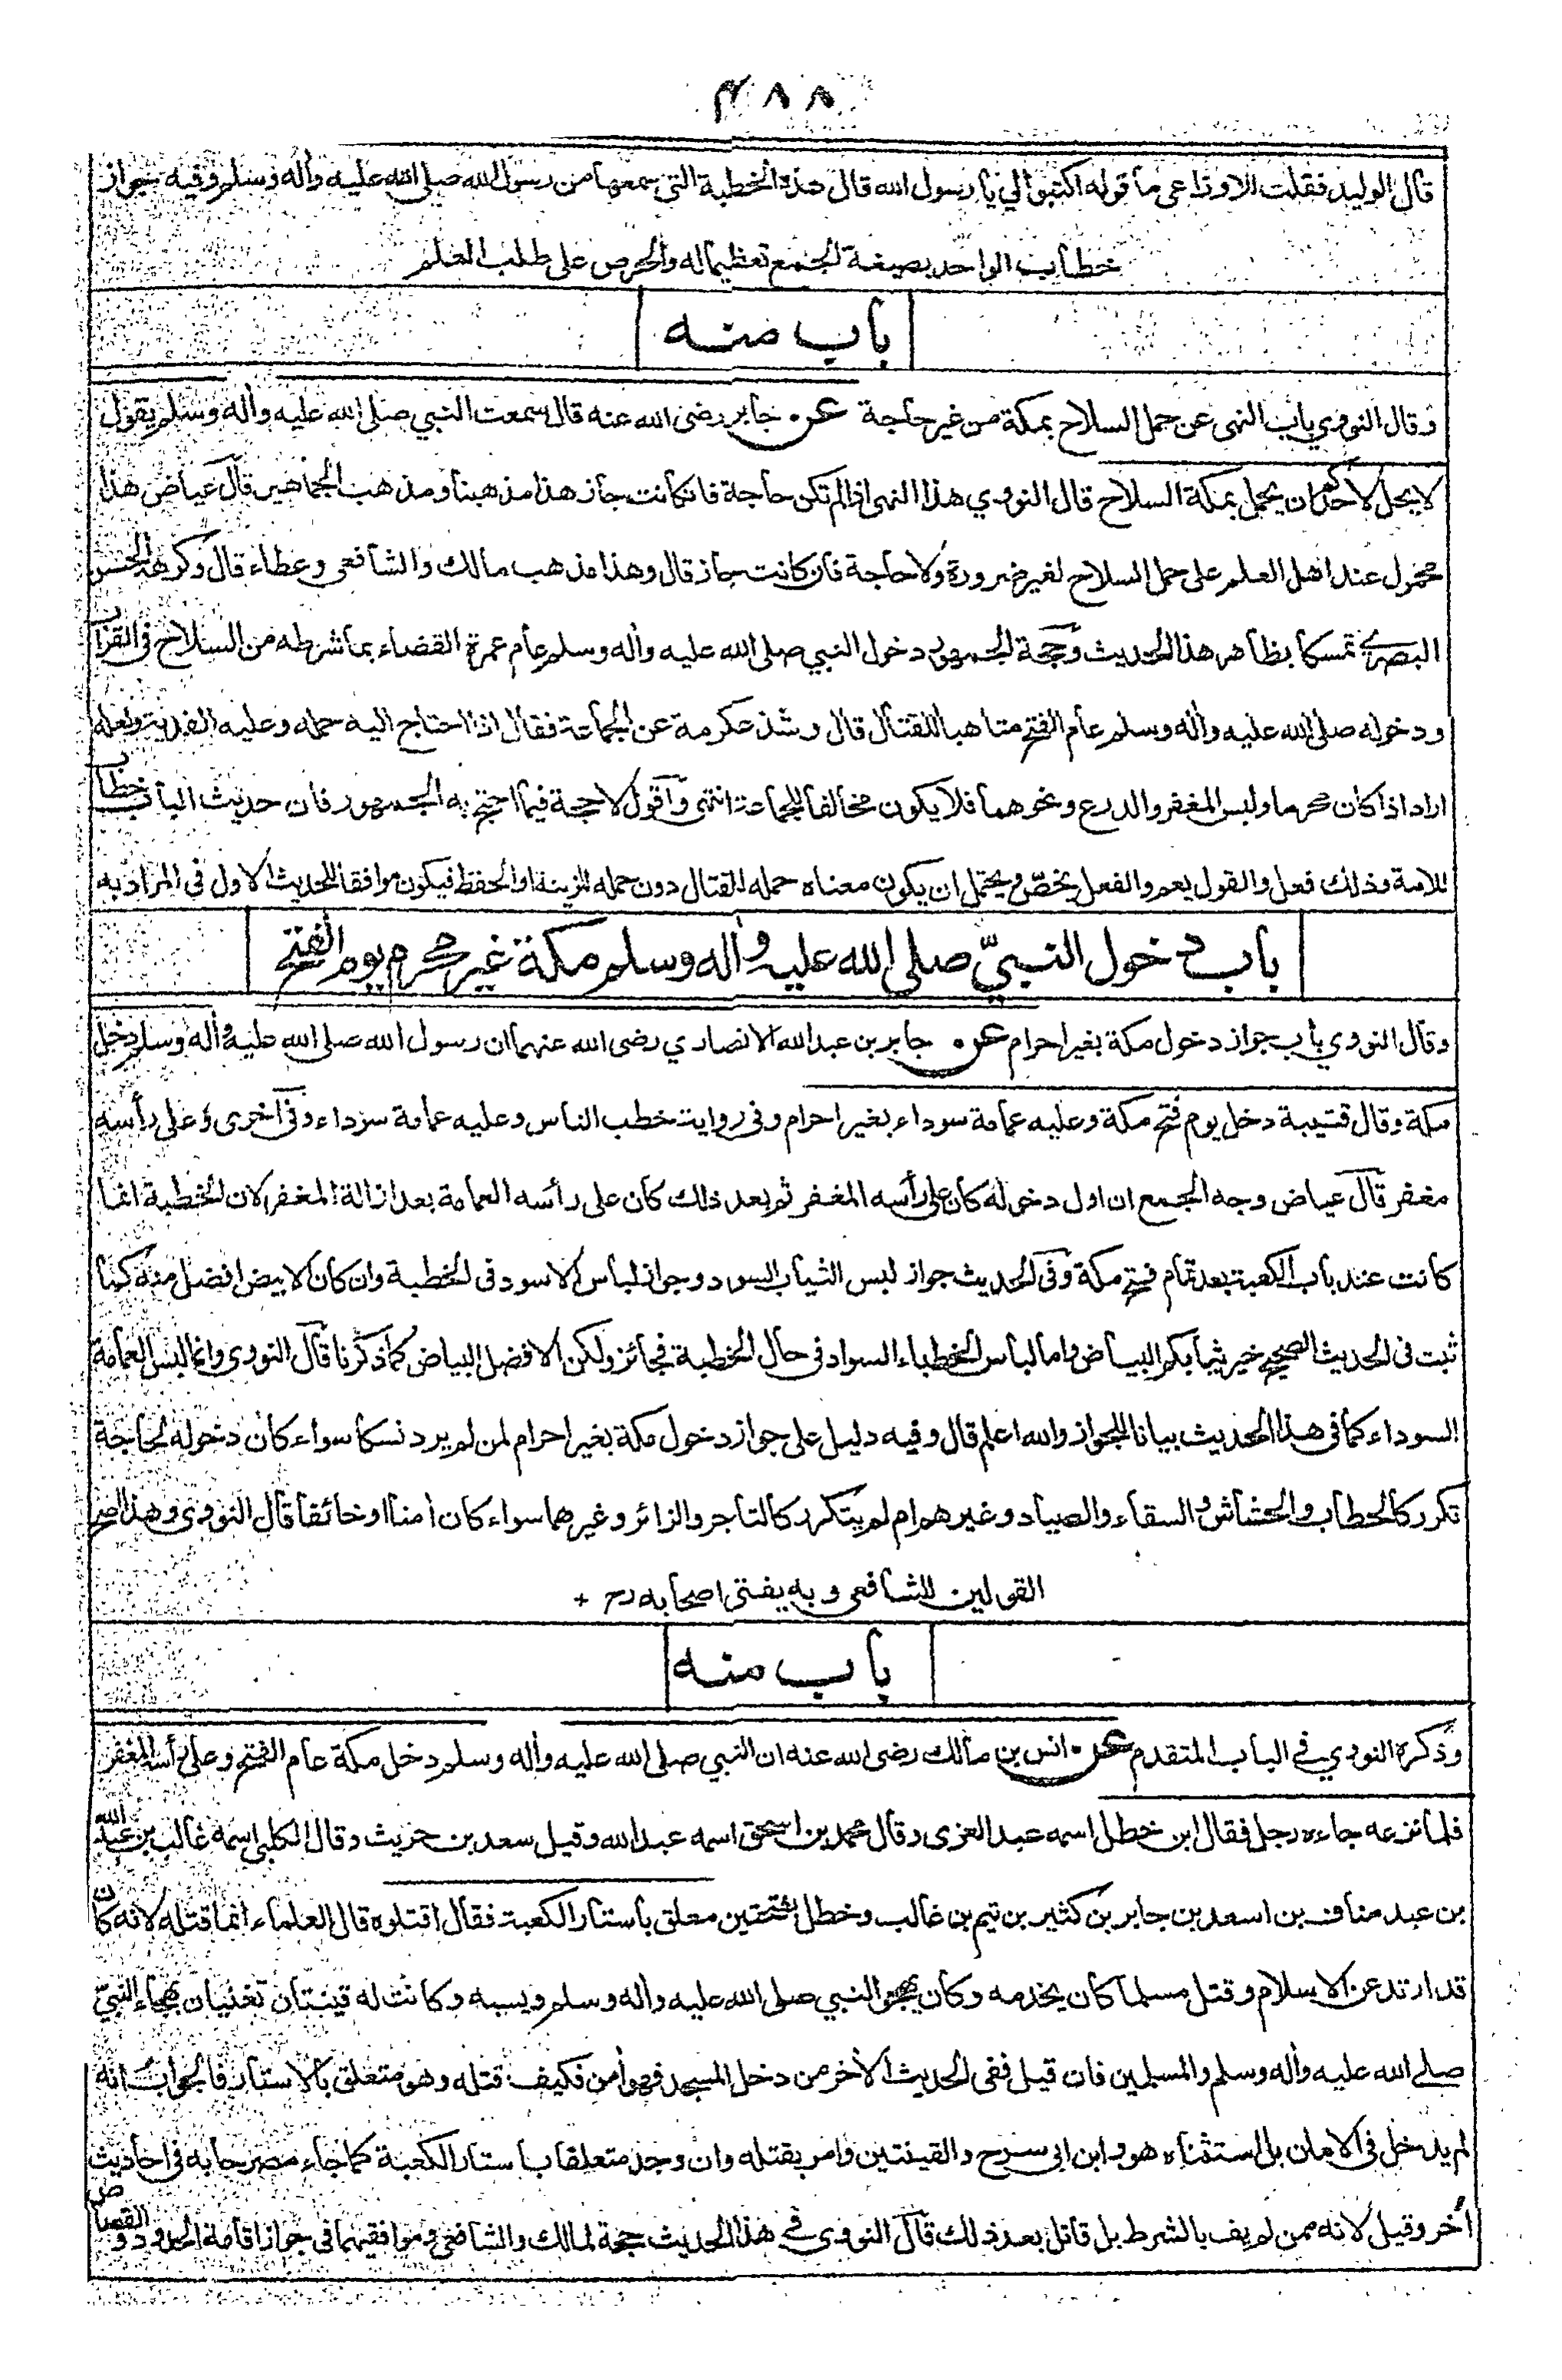 ٤٨٨
قال الوليد فقلت للاوزاعى ما قوله اكتبوا لي يا رسول الله قال هذه الخطبة التي سمعها من رسول الله صلى الله عليه واٰله وسلم وفيه جواز
خطاب الواحد بصيغة الجمع تعظيما له والحرص على طلب العلم
باب منه
وقال النووي باب النهى عن حمل السلاح بمكة من غير حاجة عن جابر رضى الله عنه قال سمعت النبي صلى الله عليه واٰله وسلم يقول
لا يحل لاحدكم ان يحمل بمكة السلاح قال النووي هذا النهى اذا لم تكن حاجة فان كانت جاز هذا مذهبنا ومذهب الجماهير قال عياض هذا
محمول عند اهل العلم على حمل السلاح لغير ضرورة ولا حاجة فان كانت جاز قال وهذا مذهب مالك والشافعى وعطاء قال وكرهه الحسن
البصري تمسكا بظاهر هذا الحديث وحجة الجمهور دخول النبي صلى الله عليه واٰله وسلم عام عمرة القضاء بما شرطه من السلاح فى القراب
ودخوله صلى الله عليه واٰله وسلم عام الفتح متاهبا للقتال قال وشذ عكرمة عن الجماعة فقال اذا احتاج اليه حمله وعليه الفدية ولعله
اراد اذا كان محرما ولبس المغفر والدرع ونحوهما فلا يكون مخالفا للجماعة انتهى واقول لا حجة فيما احتج به الجمهور فان حديث الباب خطاب
للامة وذلك فعل والقول يعم والفعل يخصّ ويحتمل ان يكون معناه حمله للقتال دون حمله للزينة او الحفظ فيكون موافقا للحديث الاول فى المراد به
باب دخول النبيّ صلى الله عليه واٰله وسلم مكة غير محرم يوم الفتح
وقال النووي باب جواز دخول مكة بغير احرام عن جابر بن عبد الله الانصاري رضى الله عنهما ان رسول الله صلى الله عليه واٰله وسلم دخل
مكة وقال قتيبة دخل يوم فتح مكة وعليه عمامة سوداء بغير احرام وفى رواية خطب الناس وعليه عمامة سوداء وفى اخرى وعلى رأسه
مغفر قال عياض وجه الجمع ان اول دخوله كان على رأسه المغفر ثم بعد ذلك كان على رأسه العمامة بعد ازالة المغفر لان الخطبة انما
كانت عند باب الكعبة بعد تمام فتح مكة وفى الحديث جواز لبس الثياب السود وجواز لباس الاسود فى الخطبة وان كان الابيض افضل منه كما
ثبت فى الحديث الصحيح خير ثيابكم البياض واما لباس الخطباء السواد فى حال الخطبة فجائز ولكن الافضل البياض كما ذكرنا قال النووى وانما لبس العمامة
السوداء كما فى هذا الحديث بيانا للجواز والله اعلم قال وفيه دليل على جواز دخول مكة بغير احرام لمن لم يرد نسكا سواء كان دخوله لحاجة
تكرر كالحطاب والحشاش والسقاء والصياد وغيرهم ام لم يتكرر كالتاجر والزائر وغيرهما سواء كان اٰمنا او خائفا قال النووى وهذا اصح
القولين للشافعى وبه يفتى اصحابه رح +
باب منه
وذكره النووي في الباب المتقدم عن انس بن مالك رضى الله عنه ان النبي صلى الله عليه واٰله وسلم دخل مكة عام الفتح وعلى رأسه المغفر
فلما نزعه جاءه رجل فقال ابن خطل اسمه عبد العزى وقال محمد بن اسحق اسمه عبد الله وقيل سعد بن حريث وقال الكلبى اسمه غالب بن عبد الله
بن عبد مناف بن اسعد بن جابر بن كثير بن تيم بن غالب وخطل بفتحتين معلق باستار الكعبة فقال اقتلوه قال العلماء انما قتله لانه كان
قد ارتد عن الاسلام وقتل مسلما كان يخدمه وكان يهجو النبي صلى الله عليه واٰله وسلم ويسبه وكانت له قينتان تغنيان بهجاء النبيّ
صلى الله عليه واٰله وسلم والمسلمين فان قيل ففى الحديث الاٰخر من دخل المسجد فهو اٰمن فكيف قتله وهو متعلق بالاستار فالجواب انه
لم يدخل فى الامان بل استثناه هو وابن ابى سرح والقينتين وامر بقتله وان وجد متعلقا باستار الكعبة كما جاء مصرحا به فى احاديث
اُخر وقيل لانه ممن لم يف بالشرط بل قاتل بعد ذلك قال النووى في هذا الحديث حجة لمالك والشافعى وموافقيهما فى جواز اقامة الحدود والقصاص